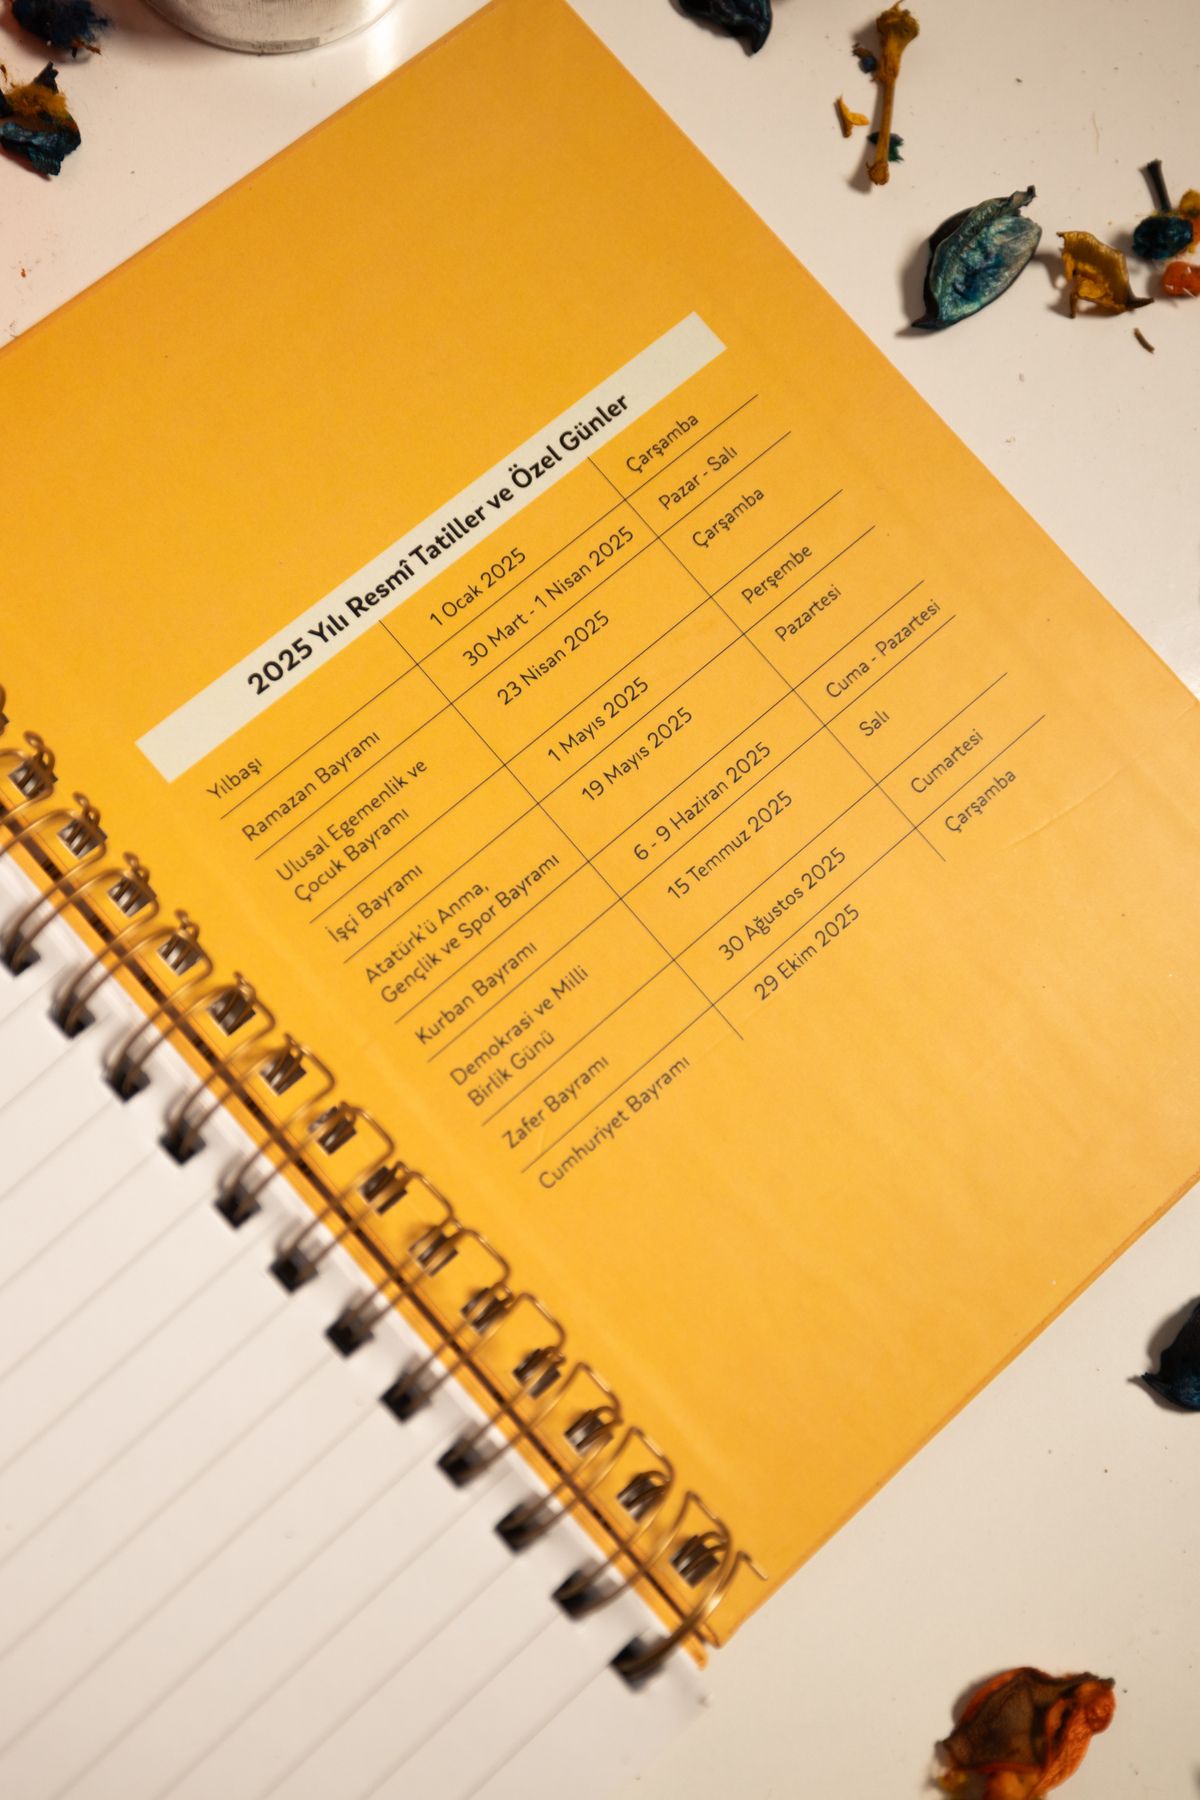 2025 Yılı Resmî Tatiller ve Özel Günler
Yılbaşı 1 Ocak 2025 Çarşamba
Ramazan Bayramı 30 Mart - 1 Nisan 2025 Pazar - Salı
Ulusal Egemenlik ve 23 Nisan 2025 Çarşamba
Çocuk Bayramı
İşçi Bayramı 1 Mayıs 2025 Perşembe
Atatürk'ü Anma, 19 Mayıs 2025 Pazartesi
Gençlik ve Spor Bayramı
Kurban Bayramı 6 - 9 Haziran 2025 Cuma - Pazartesi
Demokrasi ve Milli 15 Temmuz 2025 Salı
Birlik Günü
Zafer Bayramı 30 Ağustos 2025 Cumartesi
Cumhuriyet Bayramı 29 Ekim 2025 Çarşamba